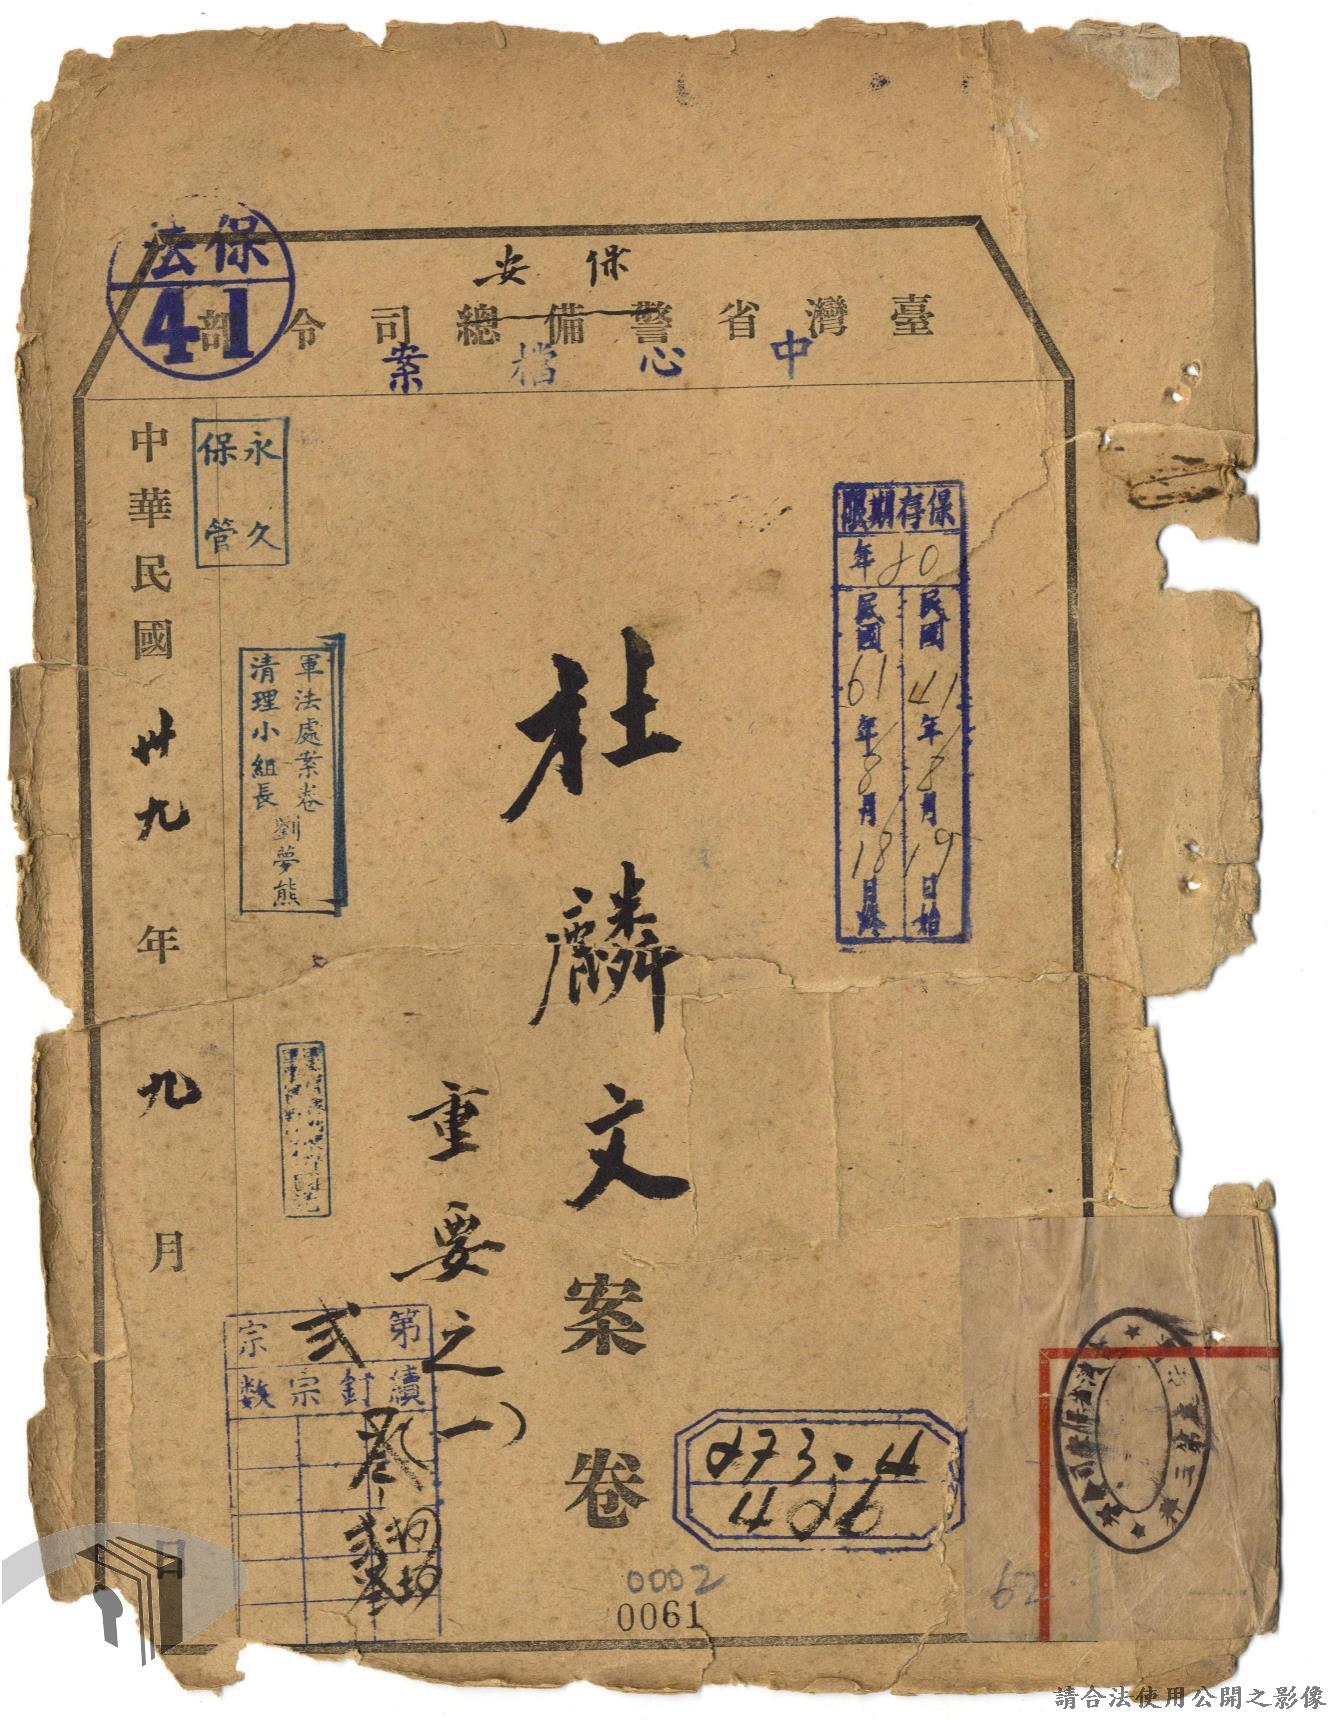 保安
臺灣省警備總司令部
中心檔案
保法
41
保存期限
20年
民國41年8月19日始
民國61年8月18日終
杜麟文案卷
重要之(一)
永久
保管
軍法處案卷
清理小組長劉夢熊
中華民國卅九年九月日
第弍宗
續釘宗数
273.4
426
0002
0061
62
請合法使用公開之影像